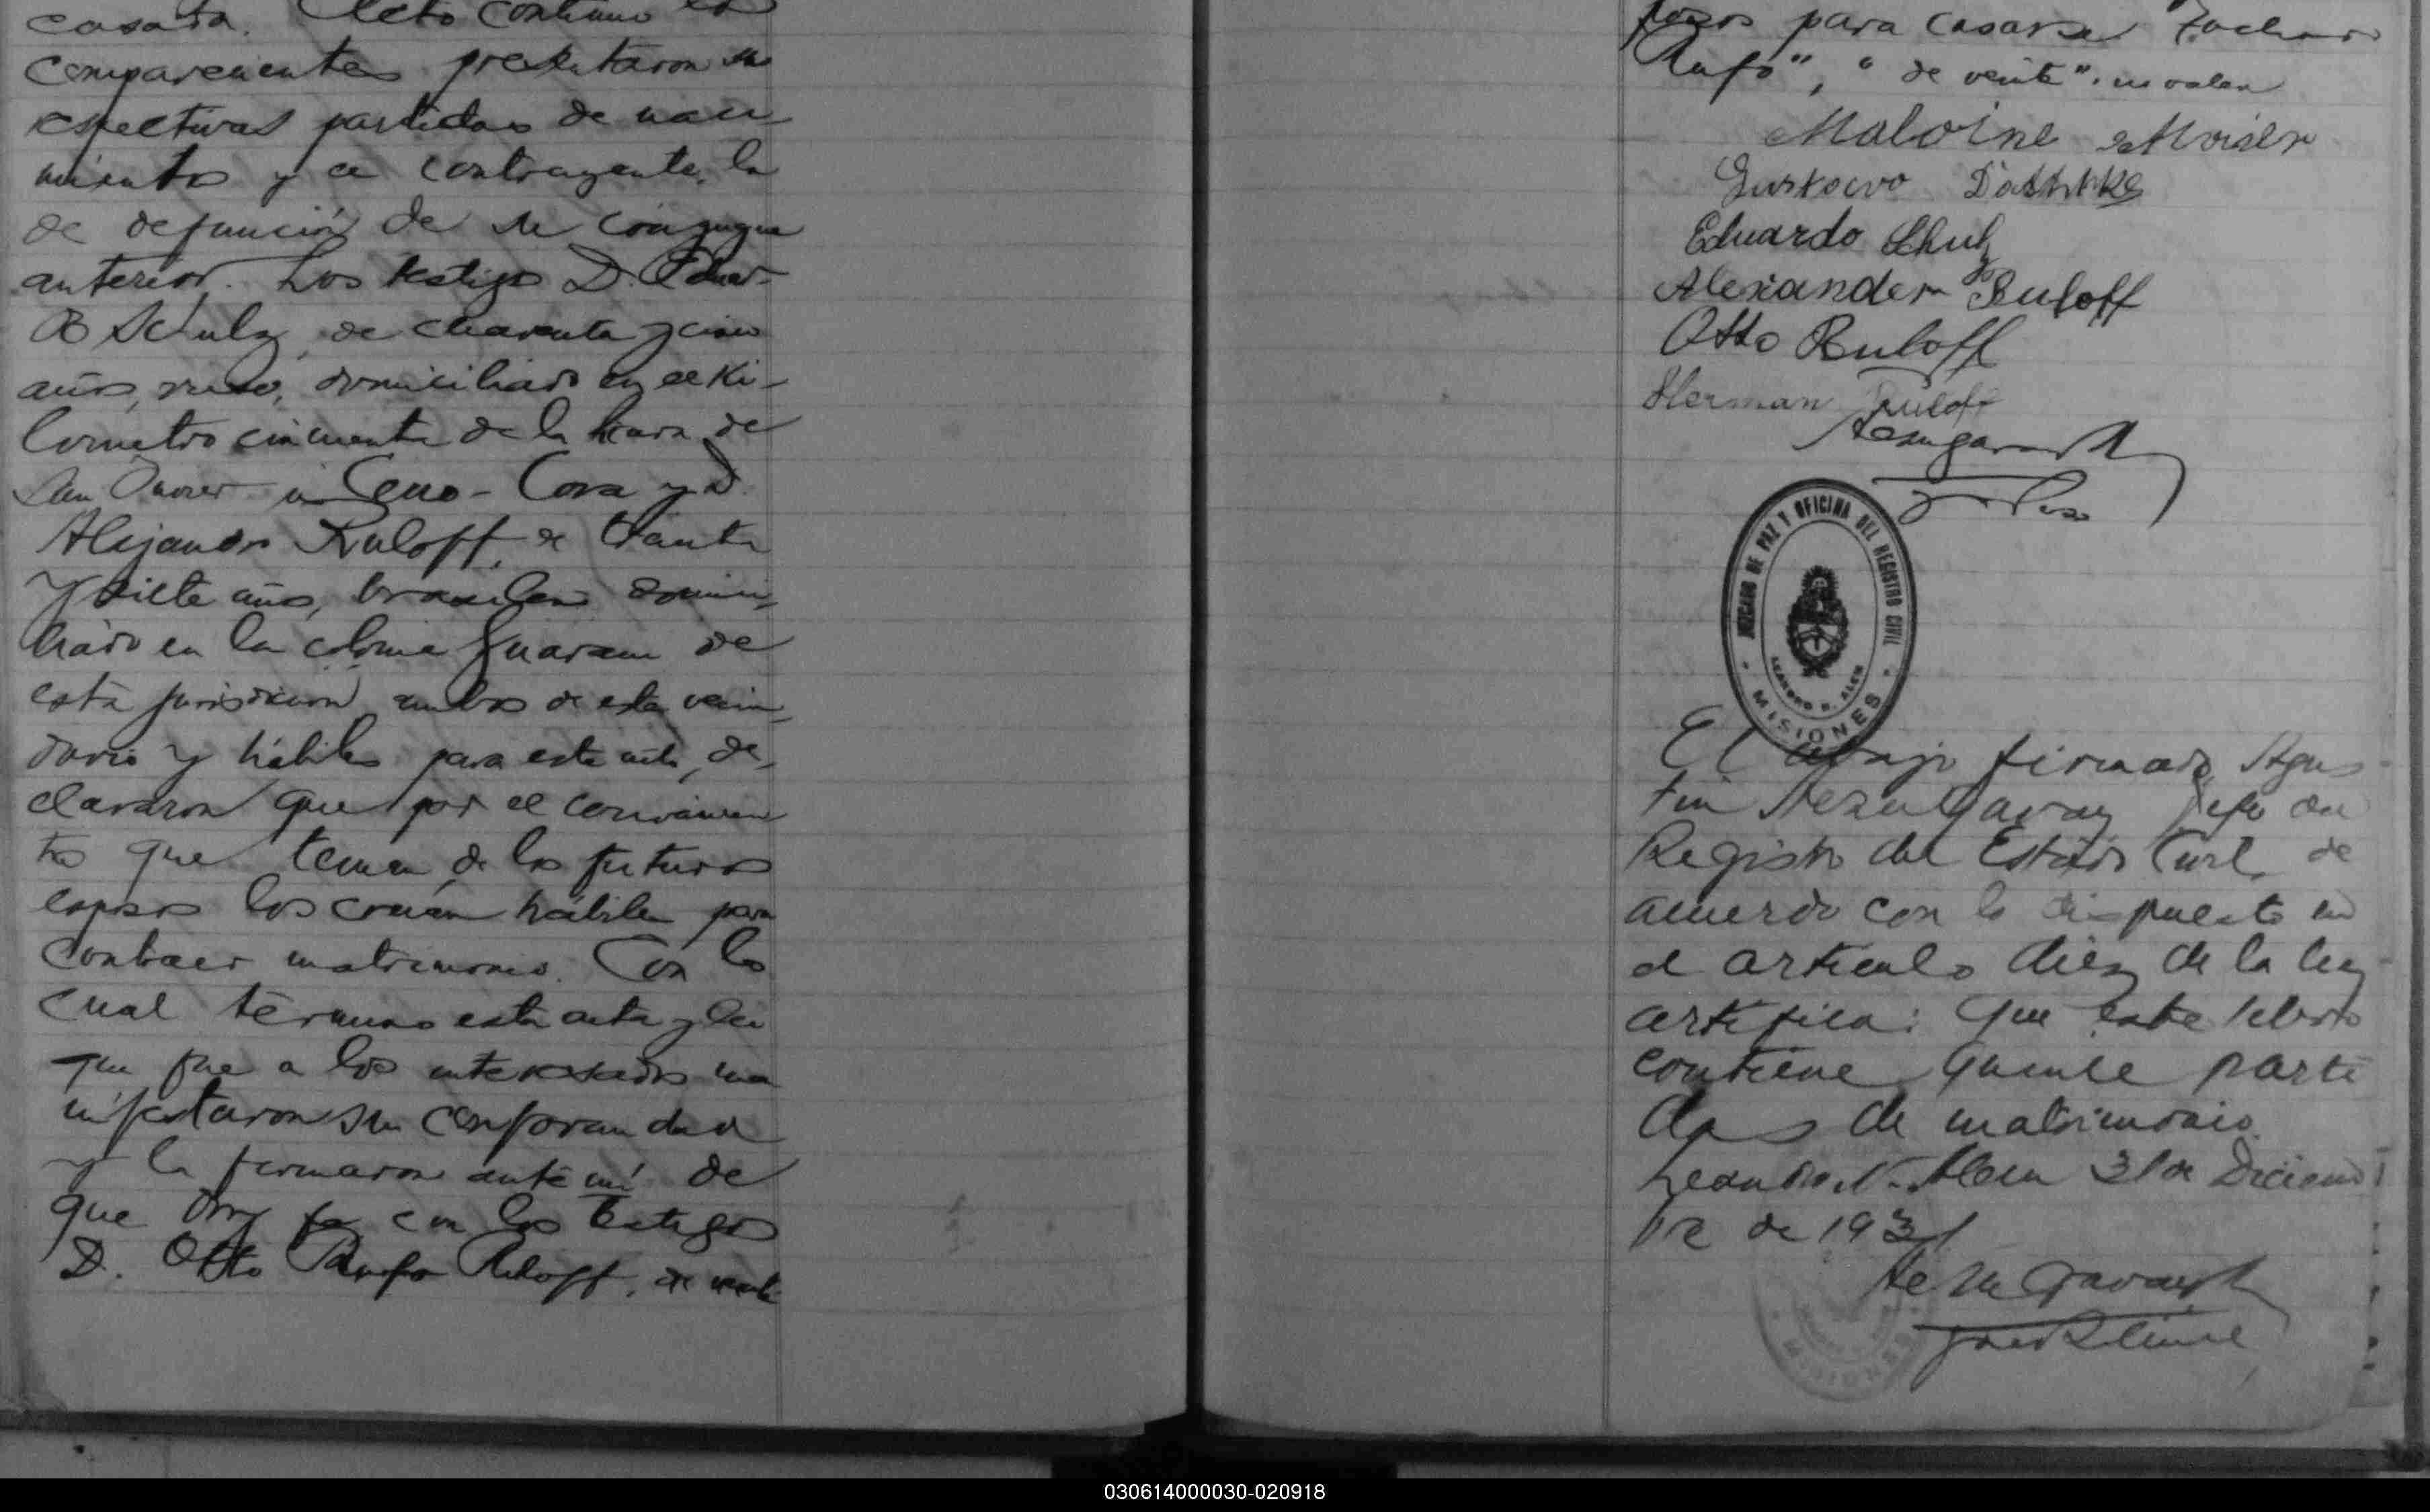 casada. Acto continuo los
comparecientes presentaron su
respectivas partidas de naci
mientos y el contrayente, la
de defunción de su conyugue
anterior. Los testigos D. Eduar-
do Schulz, de cuarenta y cinco
años, ruso, domiciliado en el Ki-
lometro cincuenta de la
San Javier a Cerro-Cora y D.
Alejandro Ruloff, de treinta
y siete años, brasilero domici-
liado en la colonia Guarani de
esta jurisdicion ambos de este vecin-
dario y hábiles para este acto, de-
clararon que por el conocimien
to que tienen de los futuros
esposos los creian hábiles para
contraer matrimonio. Con lo
cual termino esta acta y lei
que fue a los interesados ma
nifestaron su conformidad
y la firmaron ante mí de
que doy fe con los testigos
D. Otto Rufo Ruloff, de veinte
para casarse Tachado
Rufo", "de veinte". no valen
Malvine Moisen
Gustavo
Eduardo Schulz
Alexander Ruloff
Otto Ruloff
Herman Ruloff
JUZGADO DE PAZ Y OFICINA DEL REGISTRO CIVIL
LEANDRO N. ALEM
MISIONES
El abajo firmado, Agus
tin Garay Jefe del
Registro del Estado Civil, de
acuerdo con lo dispuesto en
el articulo diez de la ley
certifica: que este libro
contiene quince parti
das de matrimonio.
Leandro N. Alem 31 de Diciem
bre de 1931
MISIONES